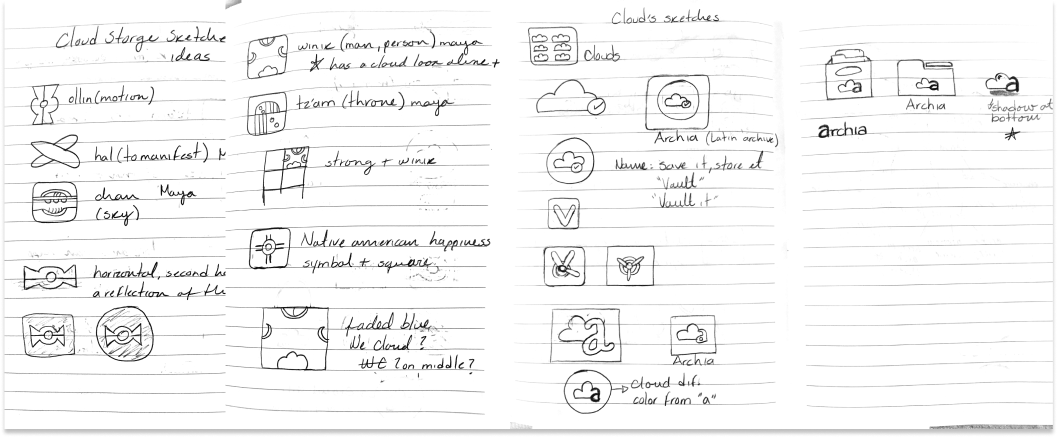 Cloud Storge Sketche
ideas
ollin (motion)
hal (to manifest) M
chan Maya
(sky)
horizontal, second ha
a reflection of the
winik (man, person) maya
has a cloud look alone +
tz'am (throne) maya
strong + winik
Native american happiness
symbol + square
faded blue
We cloud?
WC? on middle?
Cloud's sketches
Clouds
Archia (Latin archive)
Name: save it, store it
"Vault"
"Vault it"
V
a
a
Archia
a
Cloud dif.
color from "a"
a
a
a
Archia
*shadow at
bottom
archia